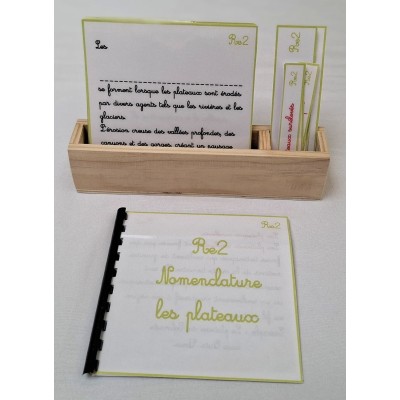 Re2
Les
se forment lorsque les plateaux sont érodés
par divers agents tels que les rivières et les
glaciers.
L'érosion creuse des vallées profondes, des
canyons et des gorges, créant un paysage
Re2
Re2
Re2
Re2
Re2
Nomenclature
les plateaux